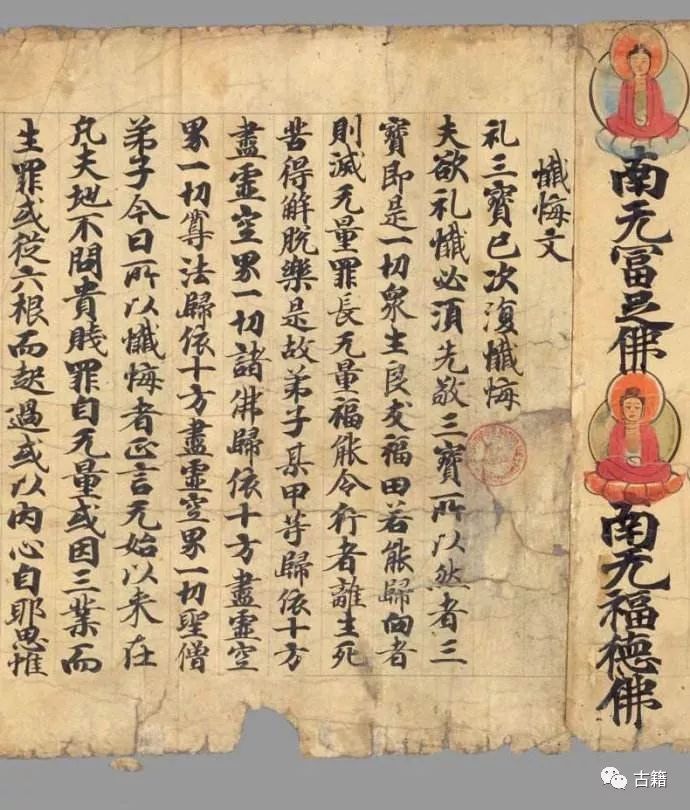 南无冨足佛
南无福德佛
懺悔文
礼三寶已次復懺悔
夫欲礼懺必湏先敬三寶所以然者三
寶即是一切衆生良友福田若能歸向者
則滅无量罪長无量福能令行者離生死
苦得解脫樂是故弟子某甲等歸依十方
盡虛空界一切諸佛歸依十方盡虛空
界一切尊法歸依十方盡虛空界一切聖僧
弟子今日所以懺悔者正言无始以來在
凡夫地不問貴賤罪自无量或因三業而
生罪或從六根而起過或以內心自耶思惟
古籍